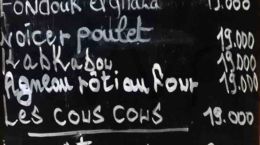 Fondouk elghala 19.000
noicer poulet 19.000
Kabkabou 19.000
Agneau rôti au four 19.000
Les cous cous 19.000